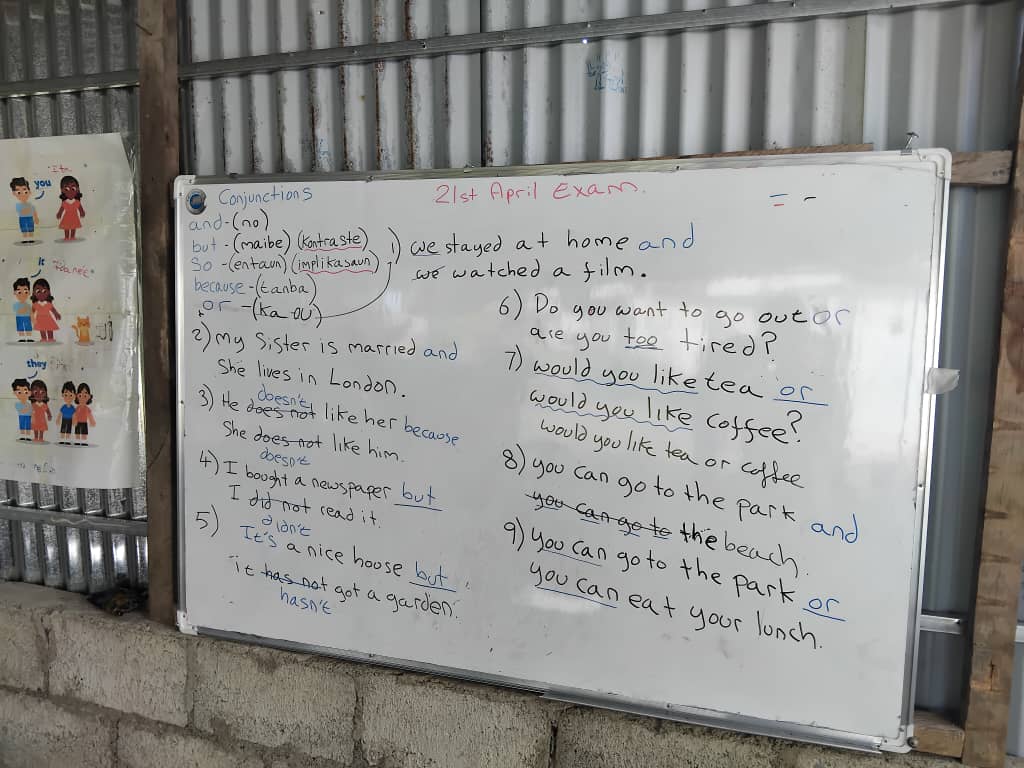 Conjunctions
21st April Exam.
and - (no)
but - (maibe) (kontraste)
So - (entaun) (implikasaun)
because - (tanba)
or - (ka - ou)
1) we stayed at home and
we watched a film.
2) my Sister is married and
She lives in London.
doesn't
3) He does not like her because
She does not like him.
doesn't
4) I bought a newspaper but
I did not read it.
didn't
5) It's a nice house but
it has not got a garden.
hasn't
6) Do you want to go out or
are you too tired?
7) would you like tea or
would you like coffee?
would you like tea or coffee
8) you can go to the park and
you can go to the beach.
9) you can go to the park or
you can eat your lunch.
you
it
they